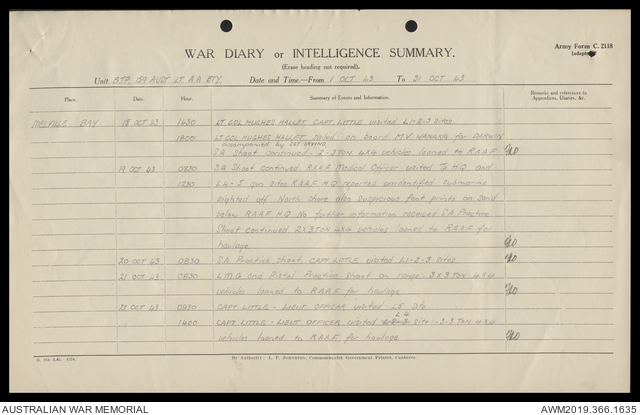 Army Form C. 2118
(adapted)
WAR DIARY or INTELLIGENCE SUMMARY.
(Erase heading not required).
Unit BTP. 69 AUST LT. A.A. BTY. Date and Time—From 1 OCT 43 To 31 OCT 43
Place. Date. Hour. Summary of Events and Information. Remarks and references to Appendices, Diaries, &c.
MELVILLE BAY 18 OCT 43 1430 LT COL HUGHES HALLET CAPT LITTLE visited L1-2-3 Sites
1800 LT COL HUGHES HALLET sailed on board M.V. WANAKA for DARWIN
accompanied by SGT IRVING
S.A. Shoot continued. 2-3 TON 4x4 vehicles loaned to R.A.A.F.
19 OCT 43 0830 S.A. Shoot continued RAAF Medical Officer visited T.H.Q and
1230 L4-5 gun sites R.A.A.F. H.Q reported unidentified submarine
sighted off North shore also suspicious foot prints on sand
below R.A.A.F H.Q No further information received S.A. Practice
Shoot continued 2x3 TON 4x4 vehicles loaned to R.A.A.F for
haulage
20 OCT 43 0830 S.A. Practice Shoot, CAPT LITTLE visited L1-2-3 Sites
21 OCT 43 0830 L.M.G and Pistol Practice Shoot on range. 3x3 TON 4x4
vehicles loaned to R.A.A.F for haulage
23 OCT 43 0930 CAPT LITTLE - LIEUT OFFICER visited L5 Site
L4
1400 CAPT LITTLE - LIEUT OFFICER visited Site - 3-3 TON 4x4
vehicles loaned to R.A.A.F. for haulage
By Authority: L. F. Johnston, Commonwealth Government Printer, Canberra.
AUSTRALIAN WAR MEMORIAL
AWM2019.366.1635